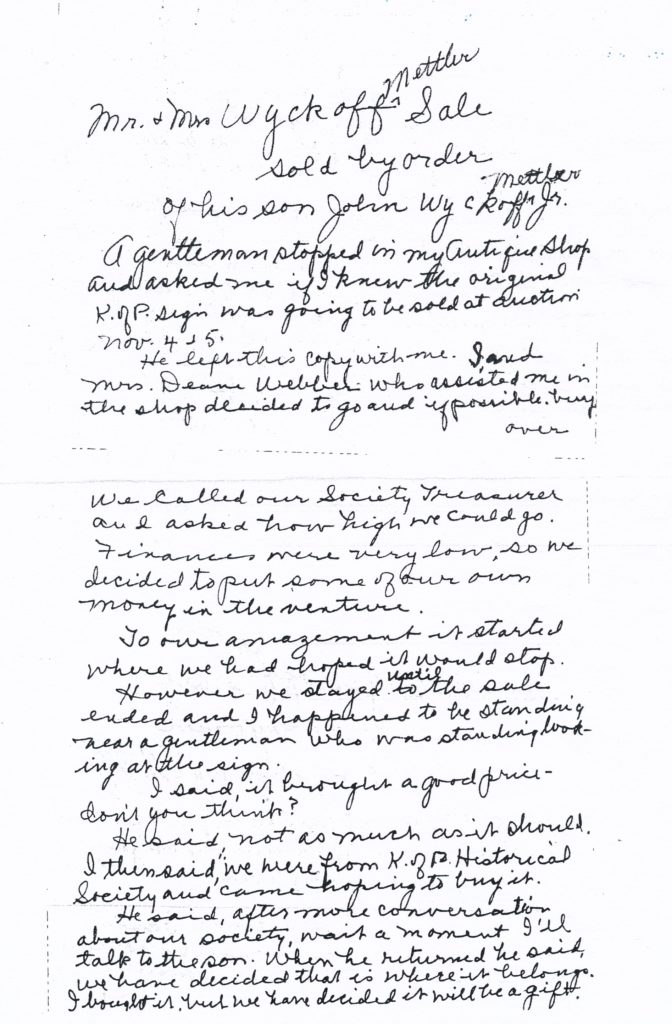 Mettler
Mr. & Mrs Wyckoff ^ Sale
sold by order
Mettler
of his son John Wyckoff ^ Jr.
A gentleman stopped in my Antique Shop
and asked me if I knew the original
K. of P. sign was going to be sold at auction
Nov. 4 & 5.
He left this copy with me. I and
Mrs. Deane Webber who assisted me in
the shop decided to go and if possible buy
over
We called our Society Treasurer
and asked how high we could go.
Finances were very low, so we
decided to put some of our own
money in the venture.
To our amazement it started
where we had hoped it would stop.
until
However we stayed to the sale
ended and I happened to be standing
near a gentleman who was standing look-
ing at the sign.
I said, it brought a good price -
don't you think?
He said, not as much as it should.
I then said, we were from K. of P. Historical
Society and came hoping to buy it.
He said, after more conversation
about our society, wait a moment I'll
talk to the son. When he returned he said,
we have decided that is where it belongs.
I bought it, but we have decided it will be a gift.